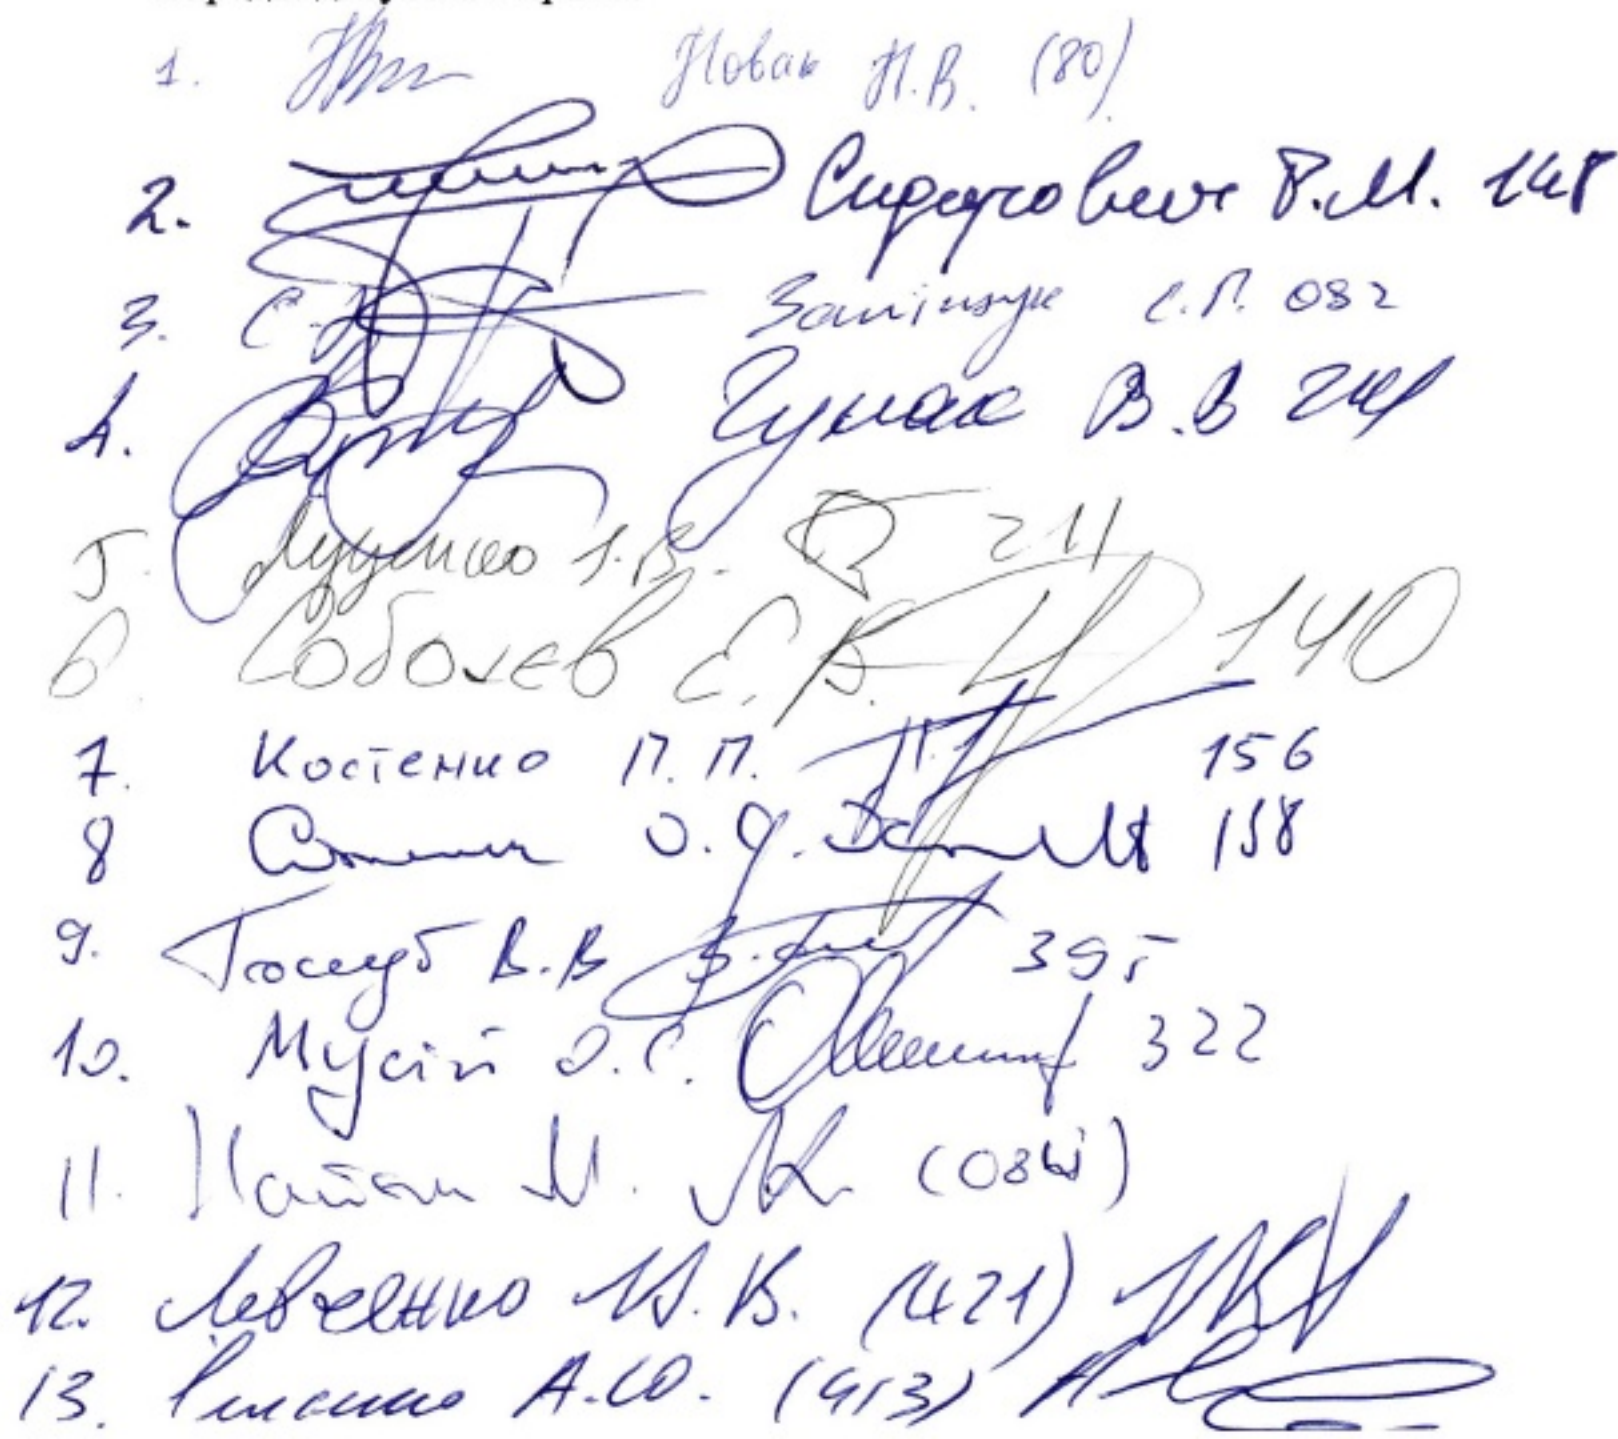 1. Новак Н.В. (80)
2. Сидорович Р.М. 148
3. С.П. Заліщук С.П. 082
4. Чумак В.В 241
5. Луценко І.В. 211
6. Соболєв Є. В. 140
7. Костенко П. П. 156
8 О. 158
9. Голуб В.В 395
10. Мусій О.С. 322
11. Найєм М.
12. Левченко Ю.В. (421)
13. А.Ю. (413)